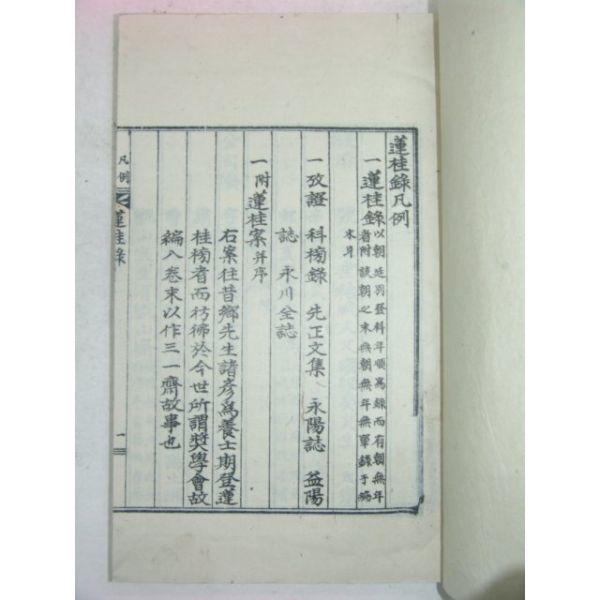 蓮桂錄凡例
一蓮桂錄以朝廷別登科年順爲錄而有朝無年
者附該朝之末無朝無年無單錄于編
末耳
一攷證 科榜錄 先正文集 永陽誌 益陽
誌 永川全誌
一附蓮桂案幷序
右案往昔鄉先生諸彦爲養士期登蓮
桂榜者而彷彿於今世所謂奬學會故
編入卷末以作三一齋故事也
凡例
蓮桂錄
一